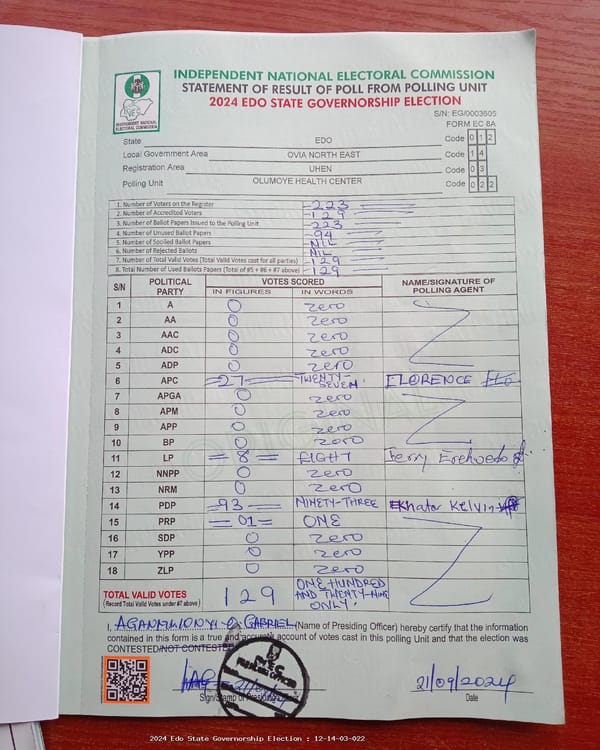 INDEPENDENT NATIONAL ELECTORAL COMMISSION
STATEMENT OF RESULT OF POLL FROM POLLING UNIT
2024 EDO STATE GOVERNORSHIP ELECTION
S/N: EG/0003605
FORM EC 8A
State EDO Code 0 1 2
Local Government Area OVIA NORTH EAST Code 1 4
Registration Area UHEN Code 0 3
Polling Unit OLUMOYE HEALTH CENTER Code 0 2 2
1. Number of Voters on the Register 223
2. Number of Accredited Voters 129
3. Number of Ballot Papers Issued to the Polling Unit 223
4. Number of Unused Ballot Papers 94
5. Number of Spoiled Ballot Papers NIL
6. Number of Rejected Ballots NIL
7. Number of Total Valid Votes (Total Valid Votes cast for all parties) 129
8. Total Number of Used Ballots Papers (Total of #5 + #6 + #7 above) 129
S/N POLITICAL PARTY VOTES SCORED NAME/SIGNATURE OF POLLING AGENT
IN FIGURES IN WORDS
1 A 0 zero
2 AA 0 zero
3 AAC 0 zero
4 ADC 0 zero
5 ADP 0 zero
6 APC =27= TWENTY-SEVEN FLORENCE
7 APGA 0 zero
8 APM 0 zero
9 APP 0 zero
10 BP 0 zero
11 LP =8= EIGHT Jerry
12 NNPP 0 zero
13 NRM 0 zero
14 PDP =93= NINETY-THREE Ekhator Kelvin
15 PRP =01= ONE
16 SDP 0 zero
17 YPP 0 zero
18 ZLP 0 zero
TOTAL VALID VOTES 129 ONE HUNDRED AND TWENTY-NINE ONLY.
(Record Total Valid Votes under #7 above)
I, GABRIEL (Name of Presiding Officer) hereby certify that the information
contained in this form is a true and accurate account of votes cast in this polling Unit and that the election was
CONTESTED/NOT CONTESTED
INEC
PRESIDING OFFICER
21/09/2024
Sign/Stamp of Date
2024 Edo State Governorship Election : 12-14-03-022